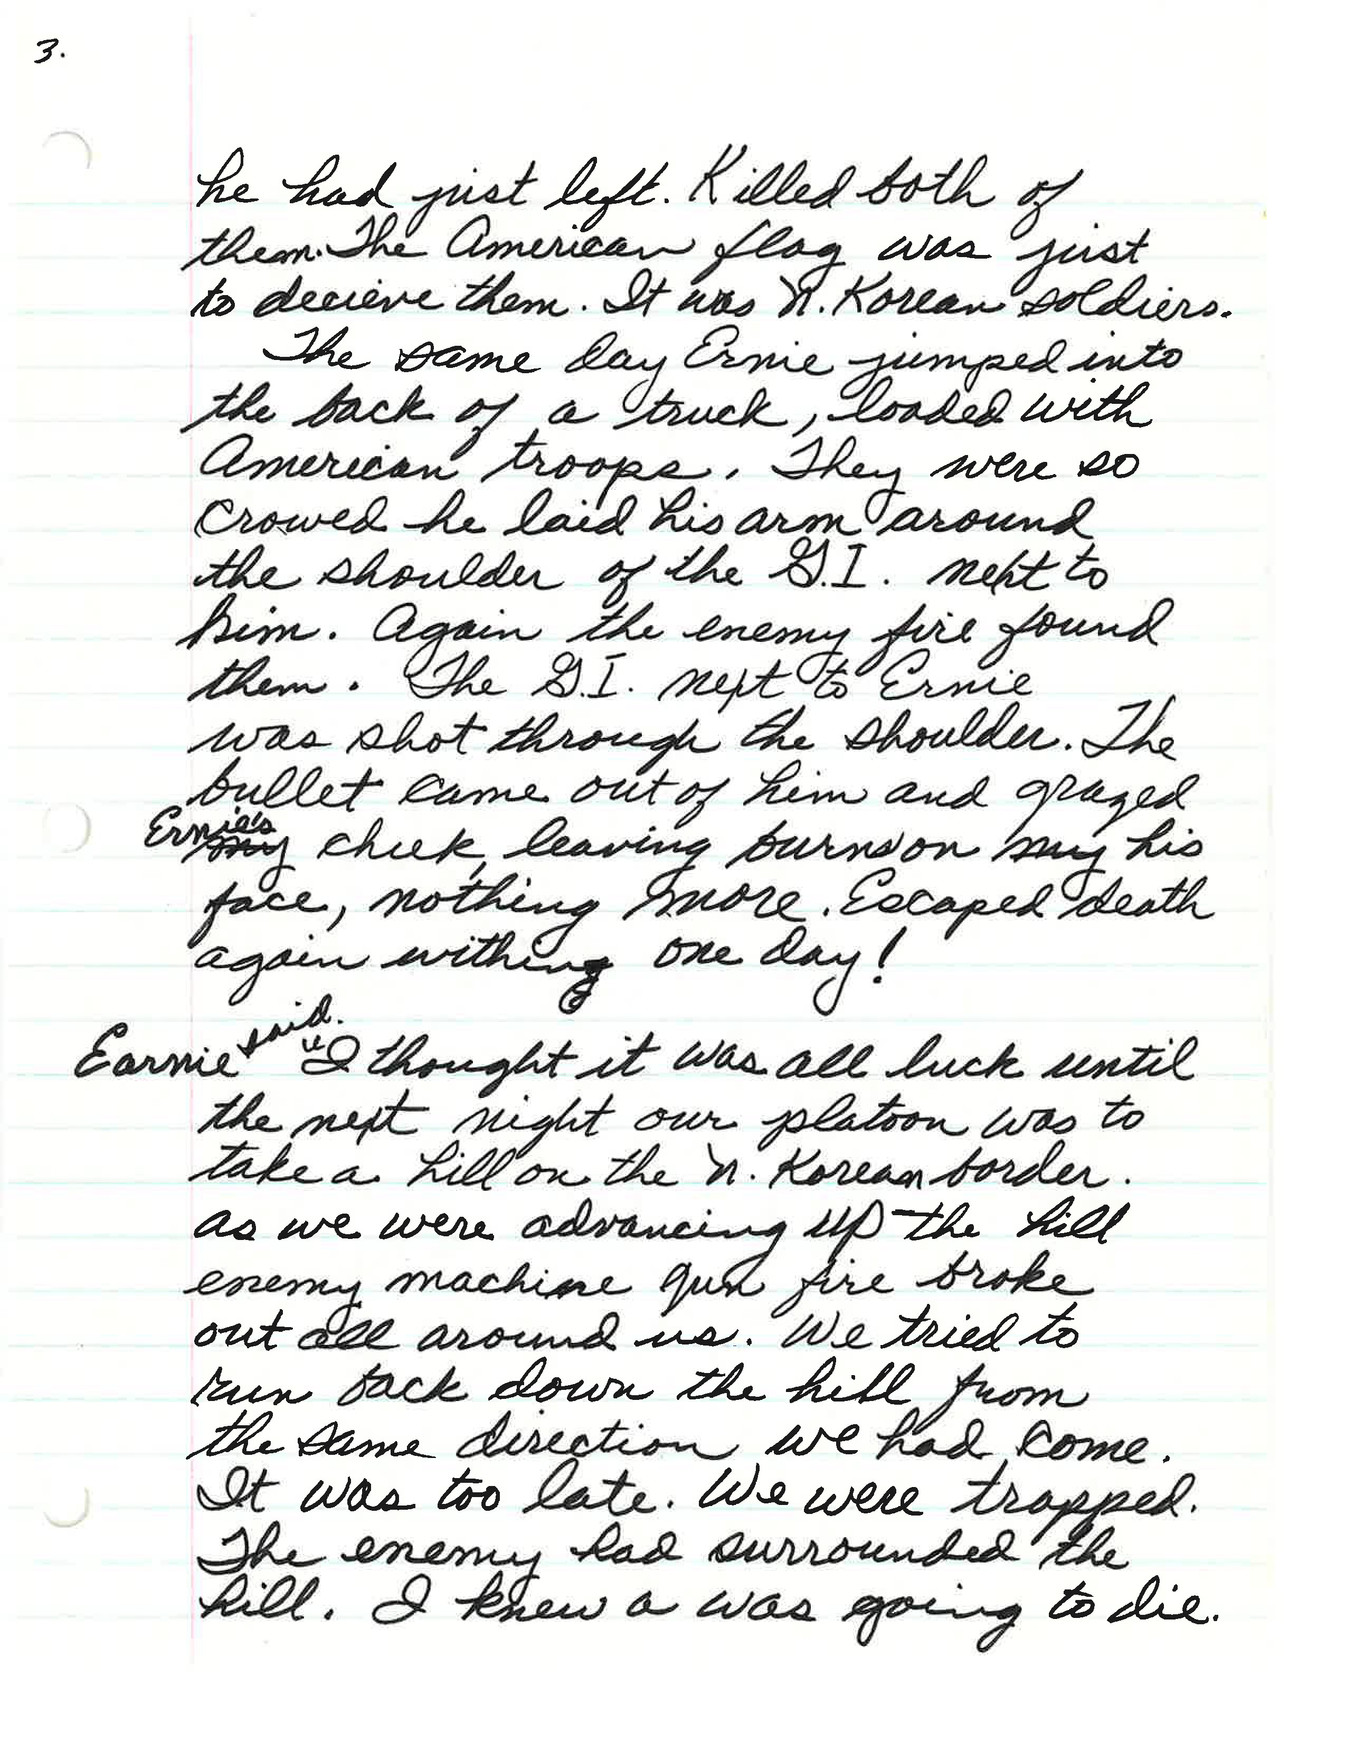 3.
he had just left. Killed both of
them. The American flag was just
to decieve them. It was N. Korean soldiers.
The same day Ernie jumped into
the back of a truck, loaded with
American troops. They were so
crowed he laid his arm around
the shoulder of the G.I. next to
him. Again the enemy fire found
them. The G.I. next to Ernie
was shot through the shoulder. The
bullet came out of him and grazed
Ernie's my cheek, leaving burns on my his
face, nothing more. Escaped death
again withing one day!
Earnie said. "I thought it was all luck until
the next night our platoon was to
take a hill on the N. Korean border.
As we were advancing up the hill
enemy machine gun fire broke
out all around us. We tried to
run back down the hill from
the same direction we had come.
It was too late. We were trapped.
The enemy had surrounded the
hill. I knew a was going to die.